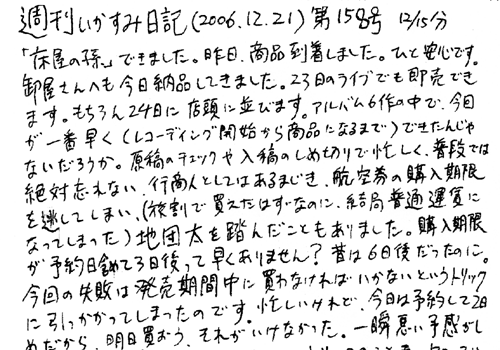 週刊いかすみ日記(2006.12.21)第158号 12/15分
「床屋の孫」できました。昨日、商品到着しました。ひと安心です。
卸屋さんへも今日納品してきました。23日のライブでも即売でき
ます。もちろん24日に店頭に並びます。アルバム6作の中で、今回
が一番早く(レコーディング開始から商品になるまで)できたんじゃ
ないだろうか。原稿のチェックや入稿のしめ切りで忙しく、普段では
絶対忘れない、行商人としてはあるまじき、航空券の購入期限
を逃してしまい、(旅割で買えたはずなのに、結局普通運賃に
なってしまった)地団太を踏んだこともありました。購入期限
が予約日含めて3日後って早くありません?昔は6日後だったのに。
今回の失敗は発売期間中に買わなければいかないというトリック
に引っかかってしまったのです。忙しいけれど、今日は予約して2日
めだから、明日買おう、それがいけなかった。一瞬悪い予感がし